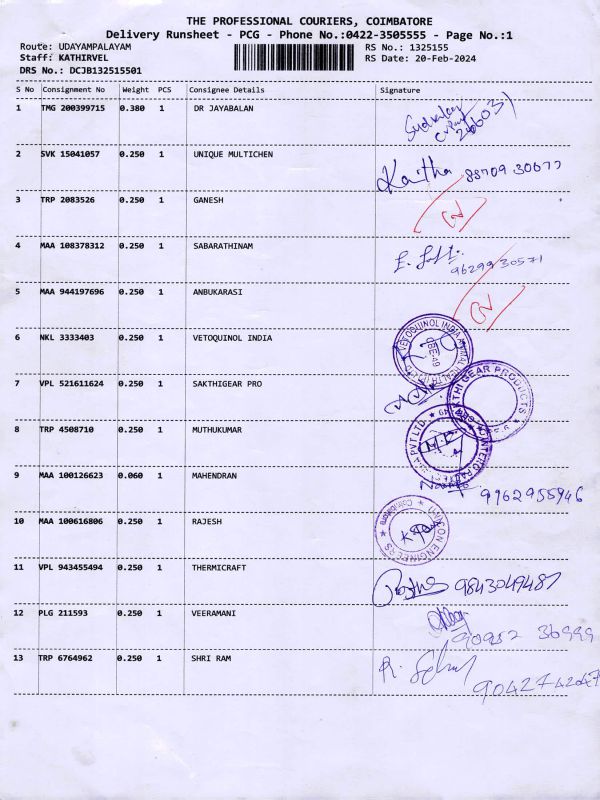 THE PROFESSIONAL COURIERS, COIMBATORE
Delivery Runsheet - PCG - Phone No.:0422-3505555 - Page No.:1
Route: UDAYAMPALAYAM RS No.: 1325155
Staff: KATHIRVEL RS Date: 20-Feb-2024
DRS No.: DCJB132515501
S No Consignment No Weight PCS Consignee Details Signature
1 TMG 200399715 0.380 1 DR JAYABALAN
2 SVK 15041057 0.250 1 UNIQUE MULTICHEN Kaitha 88709 30677
3 TRP 2083526 0.250 1 GANESH
4 MAA 108378312 0.250 1 SABARATHINAM 96299 30571
5 MAA 944197696 0.250 1 ANBUKARASI
6 NKL 3333403 0.250 1 VETOQUINOL INDIA VETOQUINOL INDIA ANIMAL HEALTH
7 VPL 521611624 0.250 1 SAKTHIGEAR PRO SAKTHI GEAR PRODUCTS
8 TRP 4508710 0.250 1 MUTHUKUMAR PVT LTD.
9 MAA 100126623 0.060 1 MAHENDRAN 9962955946
10 MAA 100616806 0.250 1 RAJESH ENGINEERS
11 VPL 943455494 0.250 1 THERMICRAFT 9843049487
12 PLG 211593 0.250 1 VEERAMANI 36999
13 TRP 6764962 0.250 1 SHRI RAM 9042742047